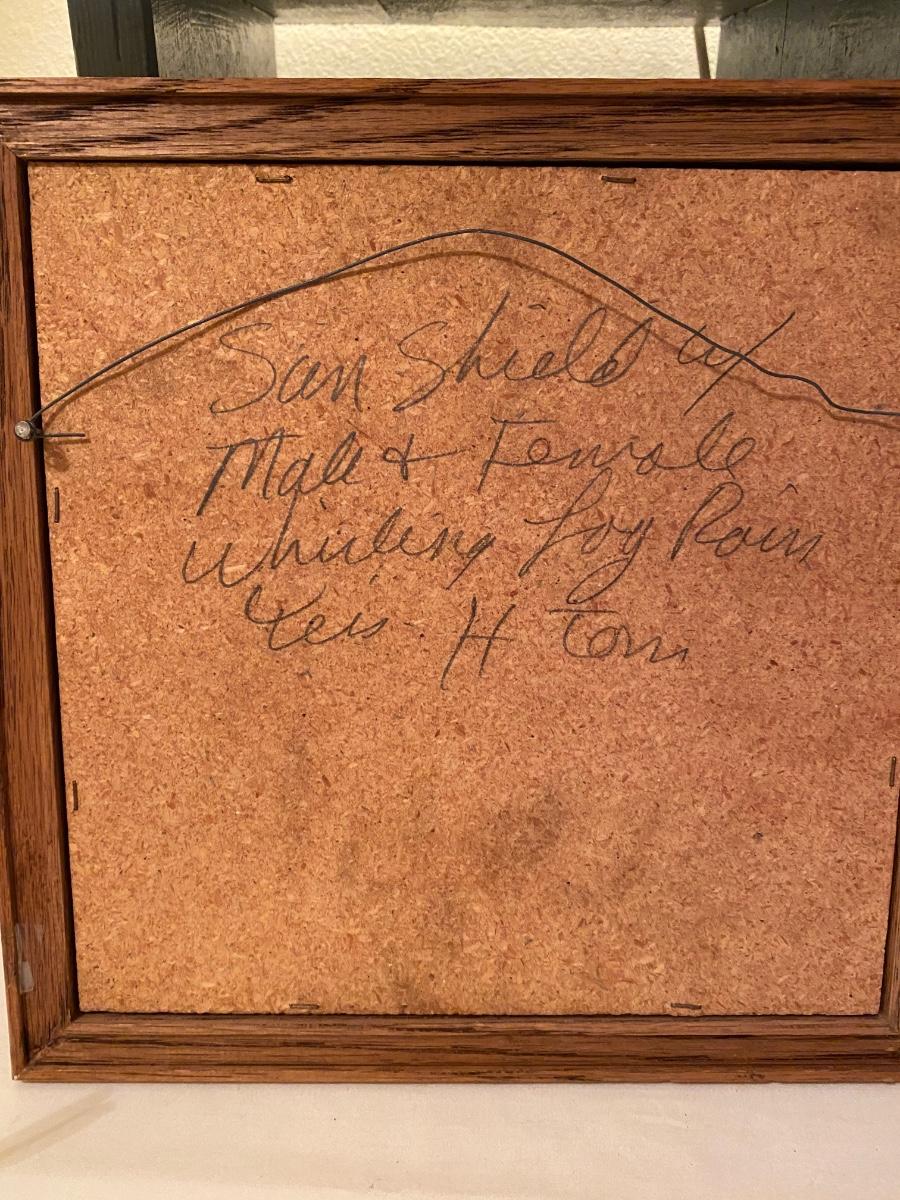 Sun Shield w/
Male + Female
Whirling Log Rain
Yeis H Tom